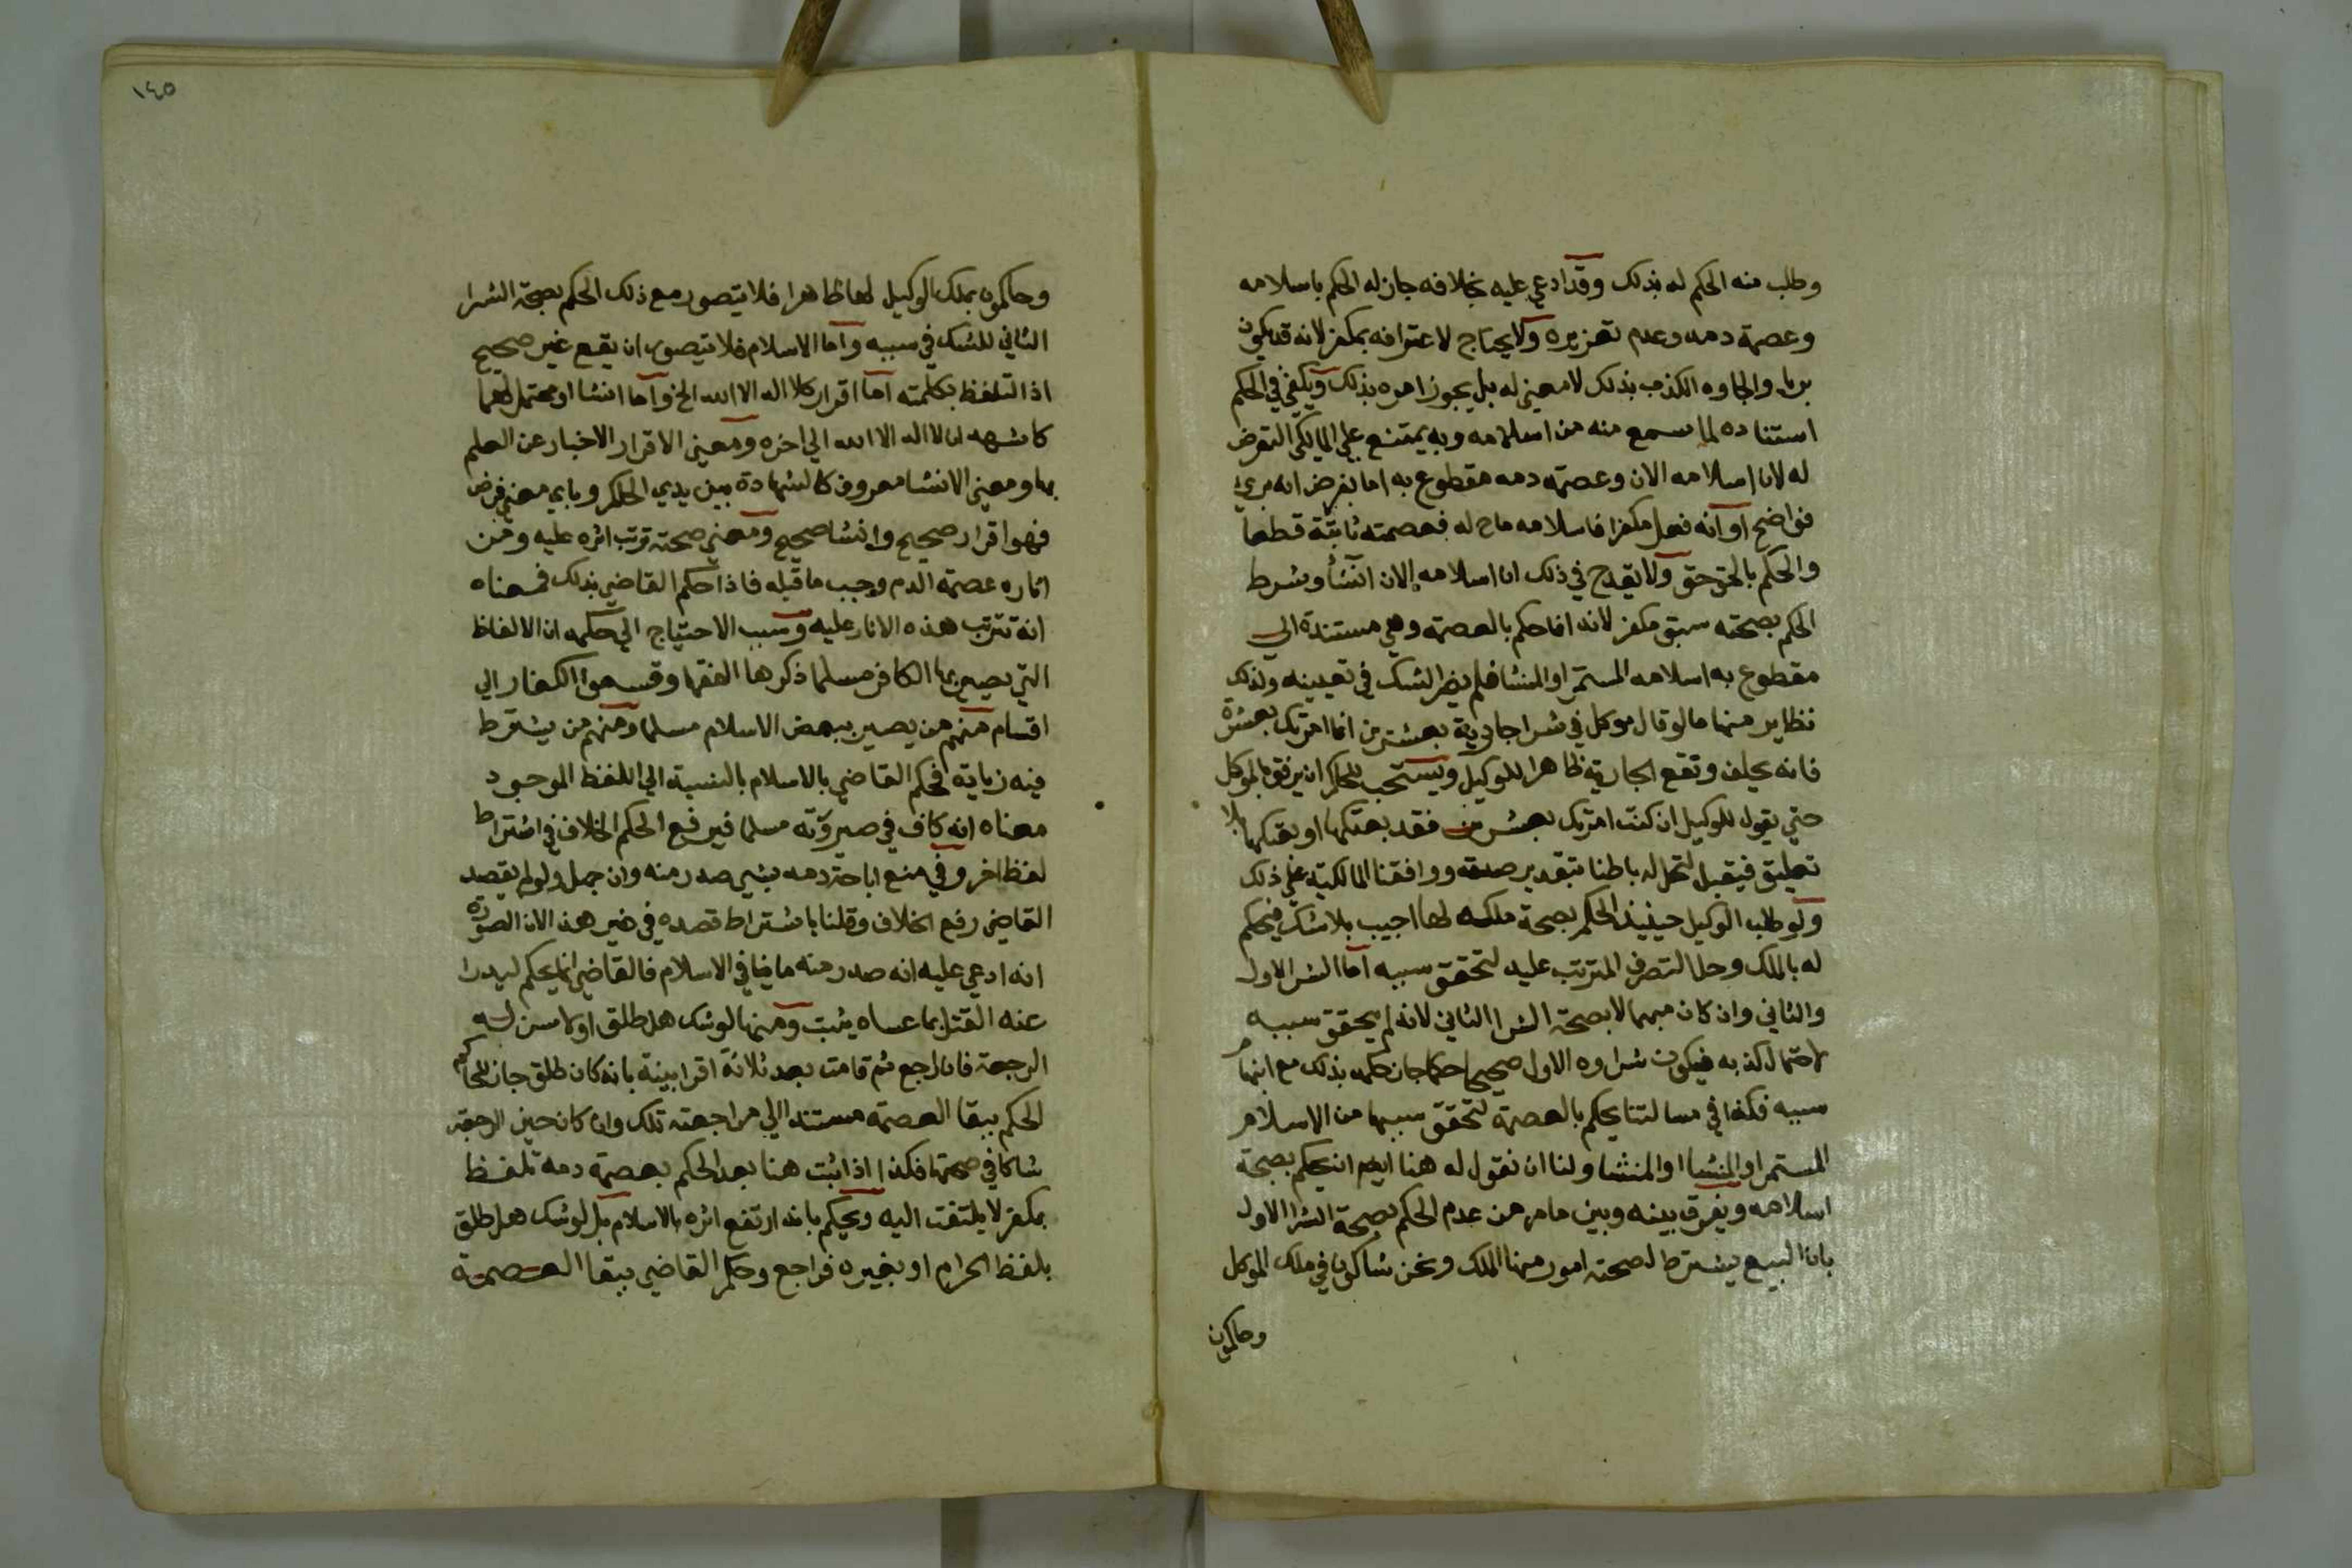 وطلب منه الحكم له بذلك وقد ادعي عليه بخلافه جاز له الحكم باسلامه
وعصمة دمه وعدم تعزيره ولا يحتاج لاعترافه بمكفر لانه قد يكون
بريا والجاوه الكذب بذلك لا معنى له بل يجوز امره بذلك ويكفي في الحكم
استناده لما سمع منه من اسلامه وبه يمتنع علي المالكي التعرض
له لان اسلامه الان وعصمة دمه مقطوع به اما بفرض انه بري
فواضح او انه فعل مكفرا فاسلامه ماح له فعصمته ثابتة قطعا
والحكم بالحق حق ولا يقدح في ذلك ان اسلامه الان انشأ وشرط
الحكم بصحته سبق مكفر لانه انما حكم بالعصمة وهي مستندة الي
مقطوع به اسلامه المستمر او المنشا فلم يضر الشك في تعيينه ولذلك
نظاير منها ما لو قال موكل في شرا جارية بعشرين انما امرتك بعشرة
فانه يحلف وتقع الجارية ظاهرا للوكيل ويستحب للحاكم ان يرفق بالموكل
حتي يقول للوكيل ان كنت امرتك بعشرين فقد بعتكها او بعتكها بلا
تعليق فيقبل لتحل له باطنا بتقدير صدقه ووافقنا المالكية علي ذلك
ولو طلب الوكيل حينيذ الحكم بصحة ملكه لها اجيب بلا شك فيحكم
له بالملك وحل التصرف المترتب عليه لتحقق سببه اما الشرا الاول
والثاني وان كان مبهما لا بصحة الشرا الثاني لانه لم يتحقق سببه
لاحتمال كذبه فيكون شراوه الاول صحيحا حكما جاز حكمه بذلك مع ابهام
سببه فكذا في مسالتنا يحكم بالعصمة لتحقق سببها من الاسلام
المستمر او المنشا او المنشا ولنا ان نقول له هنا ايضا ان يحكم بصحة
اسلامه ويفرق بينه وبين ما مر من عدم الحكم بصحة الشرا الاول
بان البيع يشترط لصحته امور منها الملك ونحن شاكون في ملك الموكل
وحاكمون
١٤٥
وحاكمون بملك الوكيل لها ظاهرا فلا يتصور مع ذلك الحكم بصحة الشرا
الثاني للشك في سببه واما الاسلام فلا يتصور ان يقع غير صحيح
اذ التلفظ بكلمته اما اقرار كلا اله الا الله الخ واما انشا او محتمل لهما
كاشهد ان لا اله الا الله الي اخره ومعنى الاقرار الاخبار عن العلم
بها ومعنى الانشا معروف كالشهادة بين يدي الحاكم وباي معنى فرض
فهو اقرار صحيح وانشا صحيح ومعني صحته ترتب اثره عليه ومن
اثاره عصمة الدم وجب ما قبله فاذا حكم القاضي بذلك فمعناه
انه تترتب هذه الاثار عليه وسبب الاحتياج الي حكمه ان الالفاظ
التي يصير بها الكافر مسلما ذكرها الفقها وقسموا الكفار الي
اقسام منهم من يصير ببعض الاسلام مسلما ومنهم من يشترط
فيه زيادة فحكم القاضي بالاسلام بالنسبة الي اللفظ الموجود
معناه انه كاف في صيرورته مسلما فيرفع الحكم الخلاف في اشتراط
لفظ اخر وفي منع اباحة دمه بشي صدر منه وان جهل ولو لم يقصد
القاضي رفع الخلاف وقلنا باشتراط قصده في غير هذا لان الصورة
انه ادعي عليه انه صدر منه ما ينافي الاسلام فالقاضي انما يحكم ليدرا
عنه القتل بما عساه يثبت ومنها لو شك هل طلق او لا سن له
الرجعة فان راجع ثم قامت بعد ثلاثة اقرا بينة بانه كان طلق جاز للحاكم
الحكم ببقا العصمة مستندا الي مراجعته تلك وان كان حين الرجعة
شاكا في صحتها فكذا اذا ثبت هنا بعد الحكم بعصمة دمه تلفظ
بمكفر لا يلتفت اليه ويحكم بانه ارتفع اثره بالاسلام بل لو شك هل طلق
بلفظ الحرام او بغيره فراجع وحكم القاضي ببقا العصمة